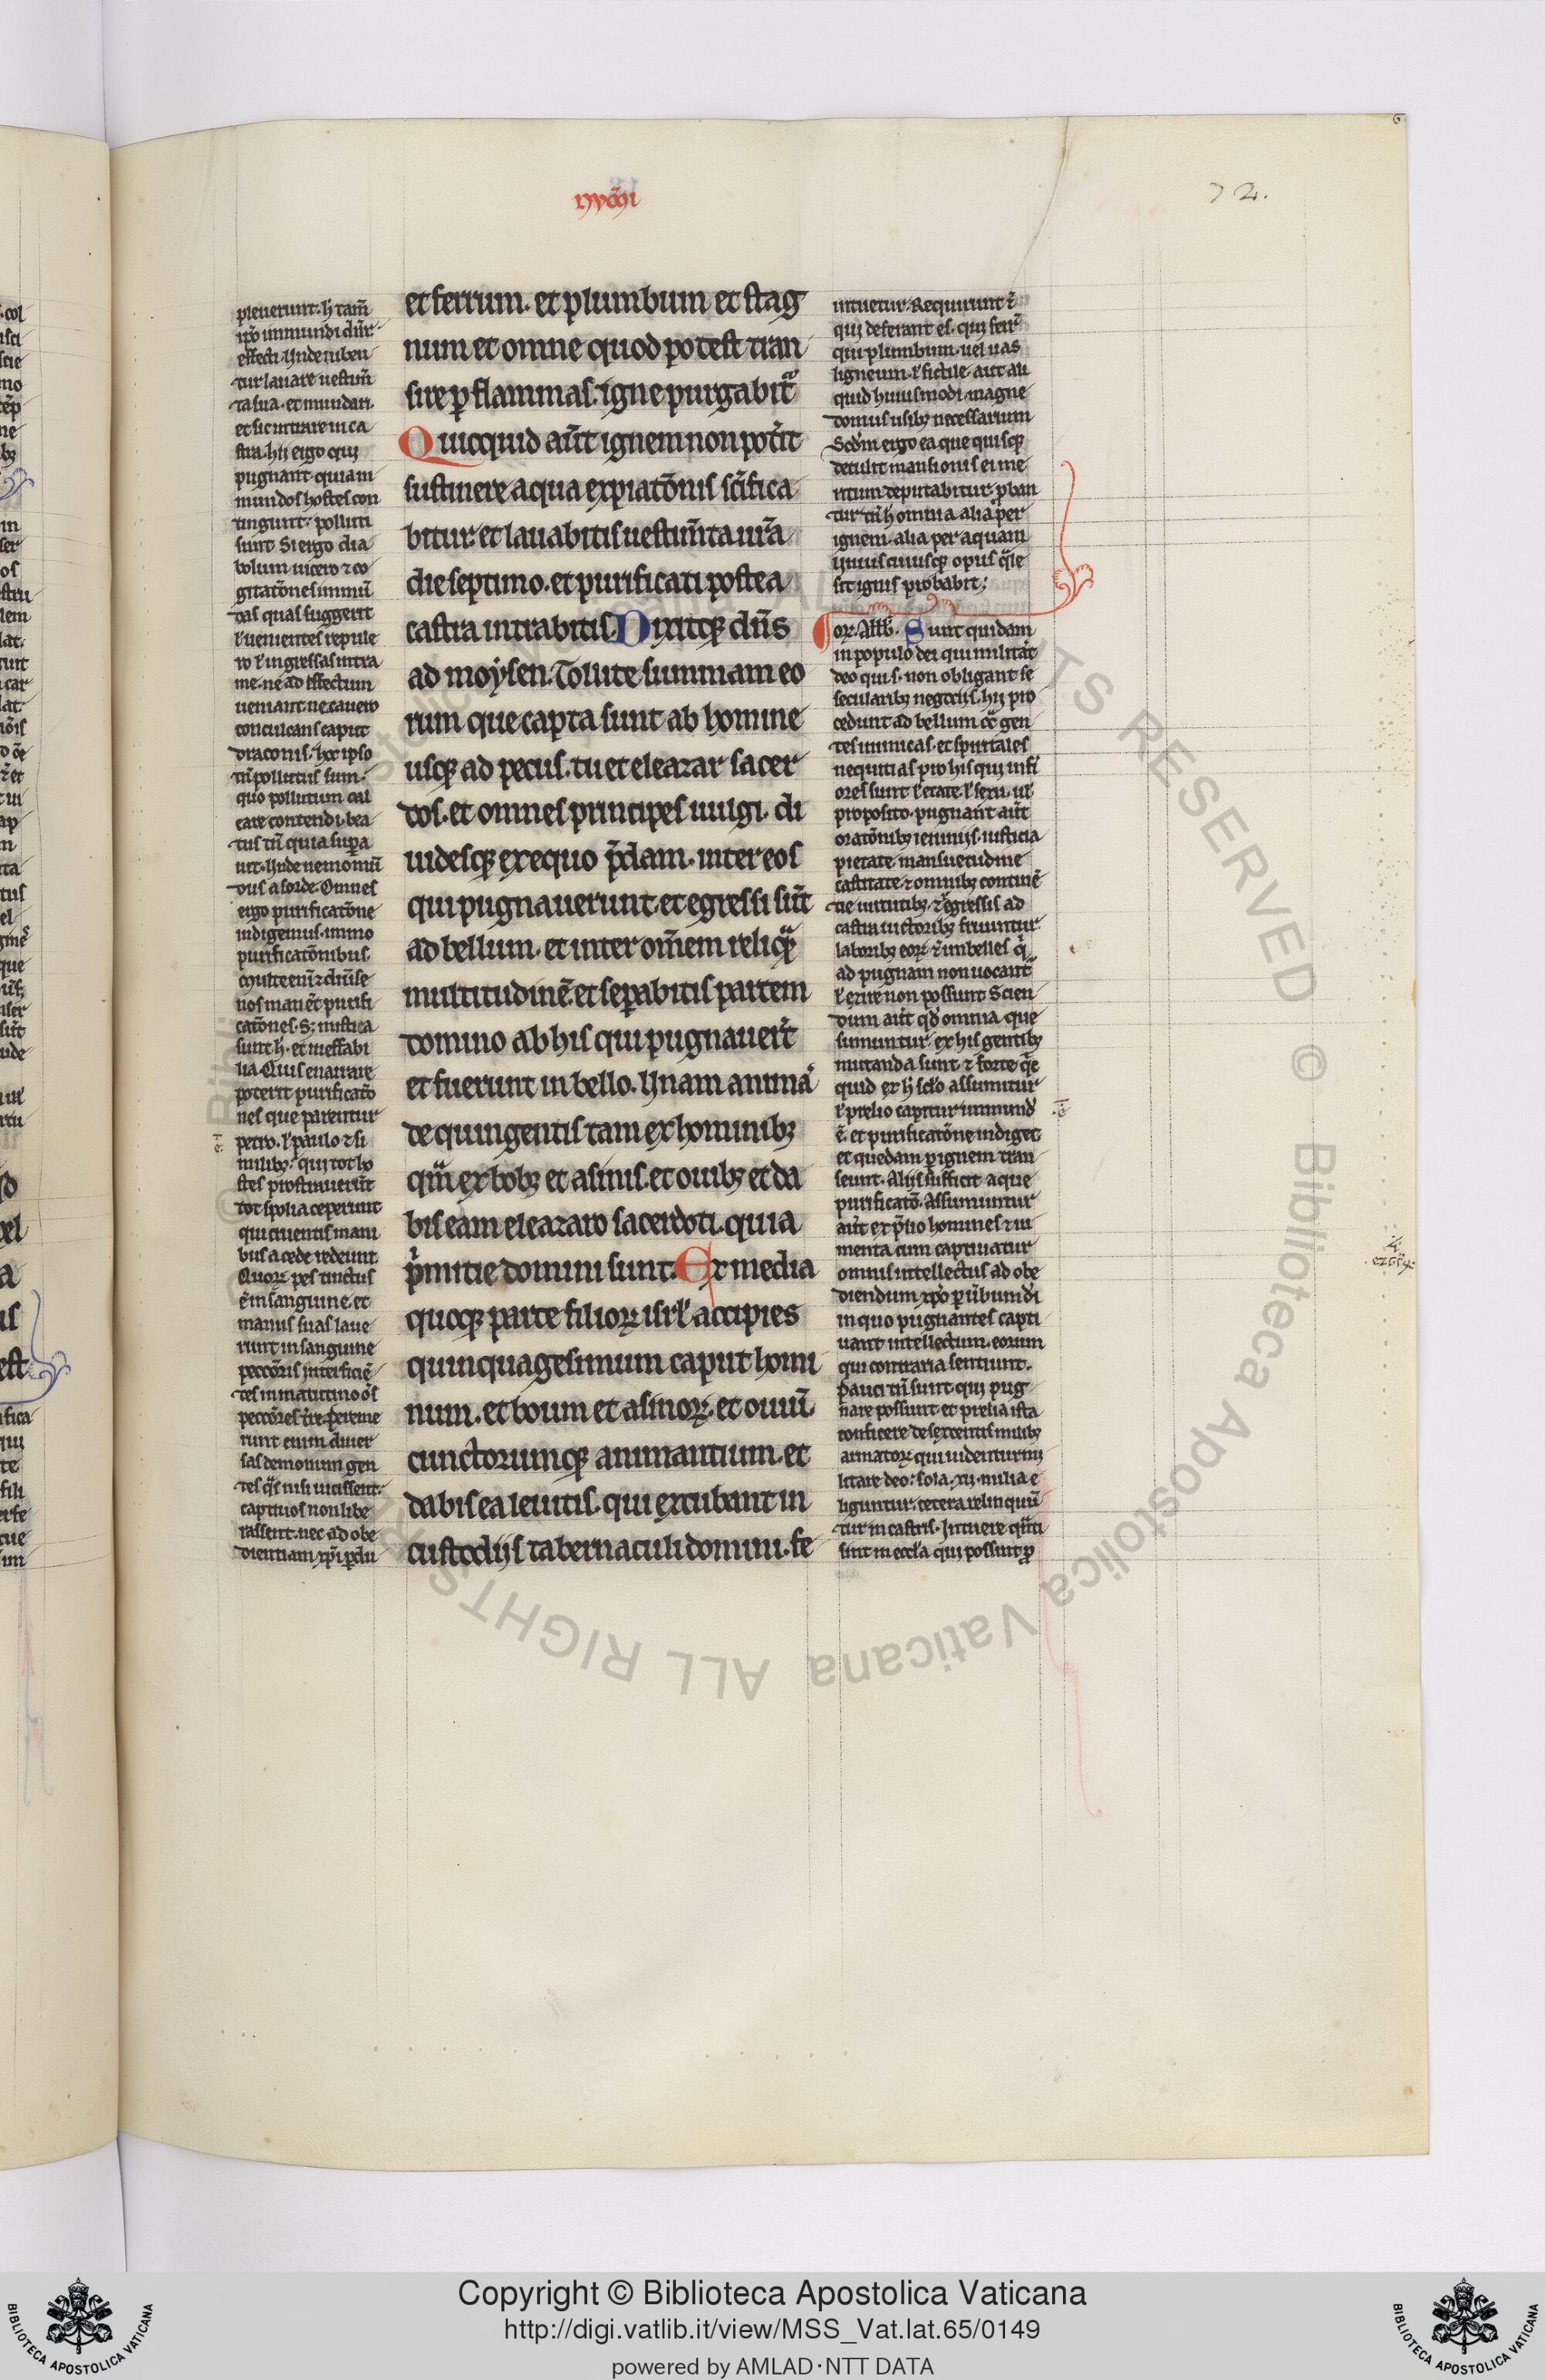 72.
pleuerunt. h̄ tam̄
effecti. Vnde iuben
tur lauare uestim̄
ta sua. et mundari.
et sic intrare in ca
stra. hij ergo qui
pugnant. quiam
mundos hostes con
tingunt. polluti
sunt. Si ergo dia
bolum uicero ⁊ co
gitatōnes immū
das quas suggerit
ł uenientes repule
ro ł ingressas intra
me. ne ad effectum
ueniant. ne cauero
conculcans caput
draconis. hoc ipso
quo pollutum cal
care contendi. bea
tus tn̄ quia supa
uit. Vnde nemo mū
dus a sorde. Omnes
ergo purificatōne
indigemus. immo
purificatōnibus.
nos manēt purifi
catōnes. Sꝫ mistica
sunt h̄. et ineffabi
lia. Quis enarrare
poterit purificatō
nes que parentur
petro. ł paulo ⁊ si
milibꝫ. qui tot ho
stes prostrauerūt
tot spolia ceperunt
qui cruentis mani
bus a cede redeunt.
Quoꝝ pes tinctus
ē in sanguine. et
manus suas laue
runt in sanguine
peccōris interficiē
tes in matutino ōs
runt enim diuer
sas demonum gen
tes q̄s nisi uicissent
captiuos non libe
rassent. nec ad obe
et ferrum. et plumbum et stag
num et omne quod potest tran
sire ꝑ flammas. igne purgabit᷑
Quicquid aūt ignem non potit
sustinere aqua expiatōnis sc̄ifica
bitur. et lauabitis uestim̄ta ur̄a
die septimo. et purificati postea
castra intrabitis. Dixitqꝫ dn̄s
ad moysen. Tollite summam eo
rum que capta sunt ab homine
usqꝫ ad pecus. tu et eleazar sacer
dos. et omnes principes uulgi. di
uidesqꝫ ex equo p̄dam. inter eos
qui pugnauerunt. et egressi sūt
ad bellum. et inter om̄em reliquā
multitudinē. et sepabitis partem
domino ab his qui pugnauerūt
et fuerunt in bello. Vnam animā
de quingentis tam ex hominibꝫ
quā ex bobꝫ et asinis. et ouibꝫ et da
bis eam eleazaro sacerdoti. quia
pͥmitie domini sunt. Ex media
quoqꝫ parte filioꝝ isrł accipies
quinquagesimum caput homi
num. et boum et asinoꝝ. et ouiū.
cunctorumqꝫ animantium. et
dabis ea leuitis. qui excubant in
custodijs tabernaculi domini. fe
intuetur. Requirunt᷑
qui deferant es. qui ferr̄
qui plumbum. uel uas
ligneum. ł fictile. aut ali
quid huiusmodi. magne
domus usibꝫ necessarium
Scdm ergo ea que quisqꝫ
detulit mansionis ei me
ritum deputabitur. ꝓban
tur tn̄ h̄ omnia alia per
ignem. alia per aquam
Vniuscuiusqꝫ opus q̄le
sit ignis probabit;
Or. Allb. Sunt quidam
in populo dei qui militāt
deo qui s. non obligant se
secularibꝫ negociis. hij pro
cedunt ad bellum cͣ gen
tes inimicas. et spiritales
nequitias pro his qui infi
ores sunt ł etate. ł sexu. uł
proposito. pugnant aūt
oratōnibꝫ ieiunijs. iusticia
pietate mansuetudine
castitate. ⁊ omnibꝫ continē
tie uirtutibꝫ. ⁊ regressis ad
castra uictoribꝫ fruuntur
laboribꝫ eoꝝ. ⁊ imbelles qͥ
ad pugnam non uocant᷑
ł exire non possunt. Scien
dum aūt qd̄ omnia que
sumuntur ex his gentibꝫ
mutanda sunt. ⁊ forte q̄c
quid ex h̄ sclo assumitur
ł prelio capitur inmund̄
ē. et purificatōne indiget
et quedam ꝑ ignem tran
seunt. Alijs sufficit aque
purificatō. Assumuntur
aūt ex p̄lio homines ⁊ iu
menta cum captiuatur
omnis intellectus ad obe
diendum xp̄o ꝑ uerbum dī
in quo pugnantes capti
uant intellectum. eorum
qui contraria sentiunt.
Pauci tn̄ sunt qui pug
nare possunt et prelia ista
conficere. de sexcentis milibꝫ
armatoꝝ qui uidentur mi
litare deo: sola .xii. milia e
liguntur. cetera relinquū
tur in castris. Intuere quāti
sint in eccła qui possint ꝓ
Copyright © Biblioteca Apostolica Vaticana
http://digi.vatlib.it/view/MSS_Vat.lat.65/0149
powered by AMLAD·NTT DATA
BIBLIOTECA APOSTOLICA VATICANA
BIBLIOTECA APOSTOLICA VATICANA